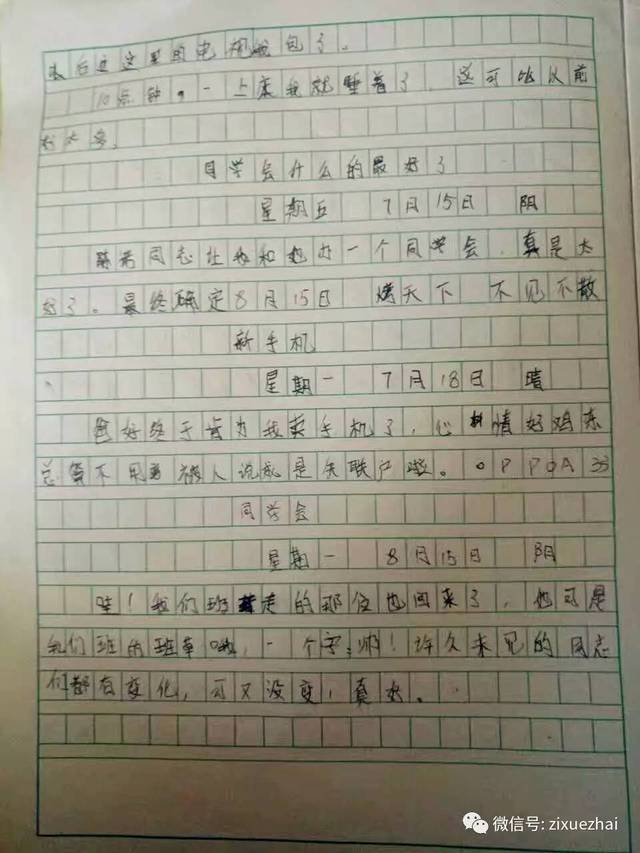 后这里的电视我包了。
10点钟,一上床我就睡着了,这可比以前
好太多。
同学会什么的最好了
星期五 7月15日 阴
同志让我和她办一个同学会,真是太
好了。最终确定8月15日 烤天下 不见不散
新手机
星期一 7月18日 晴
爸妈终于肯为我买手机了,心情好鸡东
总算不用被人说成是失联户啦。OPPOA33
同学会
星期一 8月15日 阴
哇!我们班走的那位也回来了,他可是
我们班的班草哦,一个字:帅!许久未见的同志
们都有变化,可又没变,真好。
微信号: zixuezhai